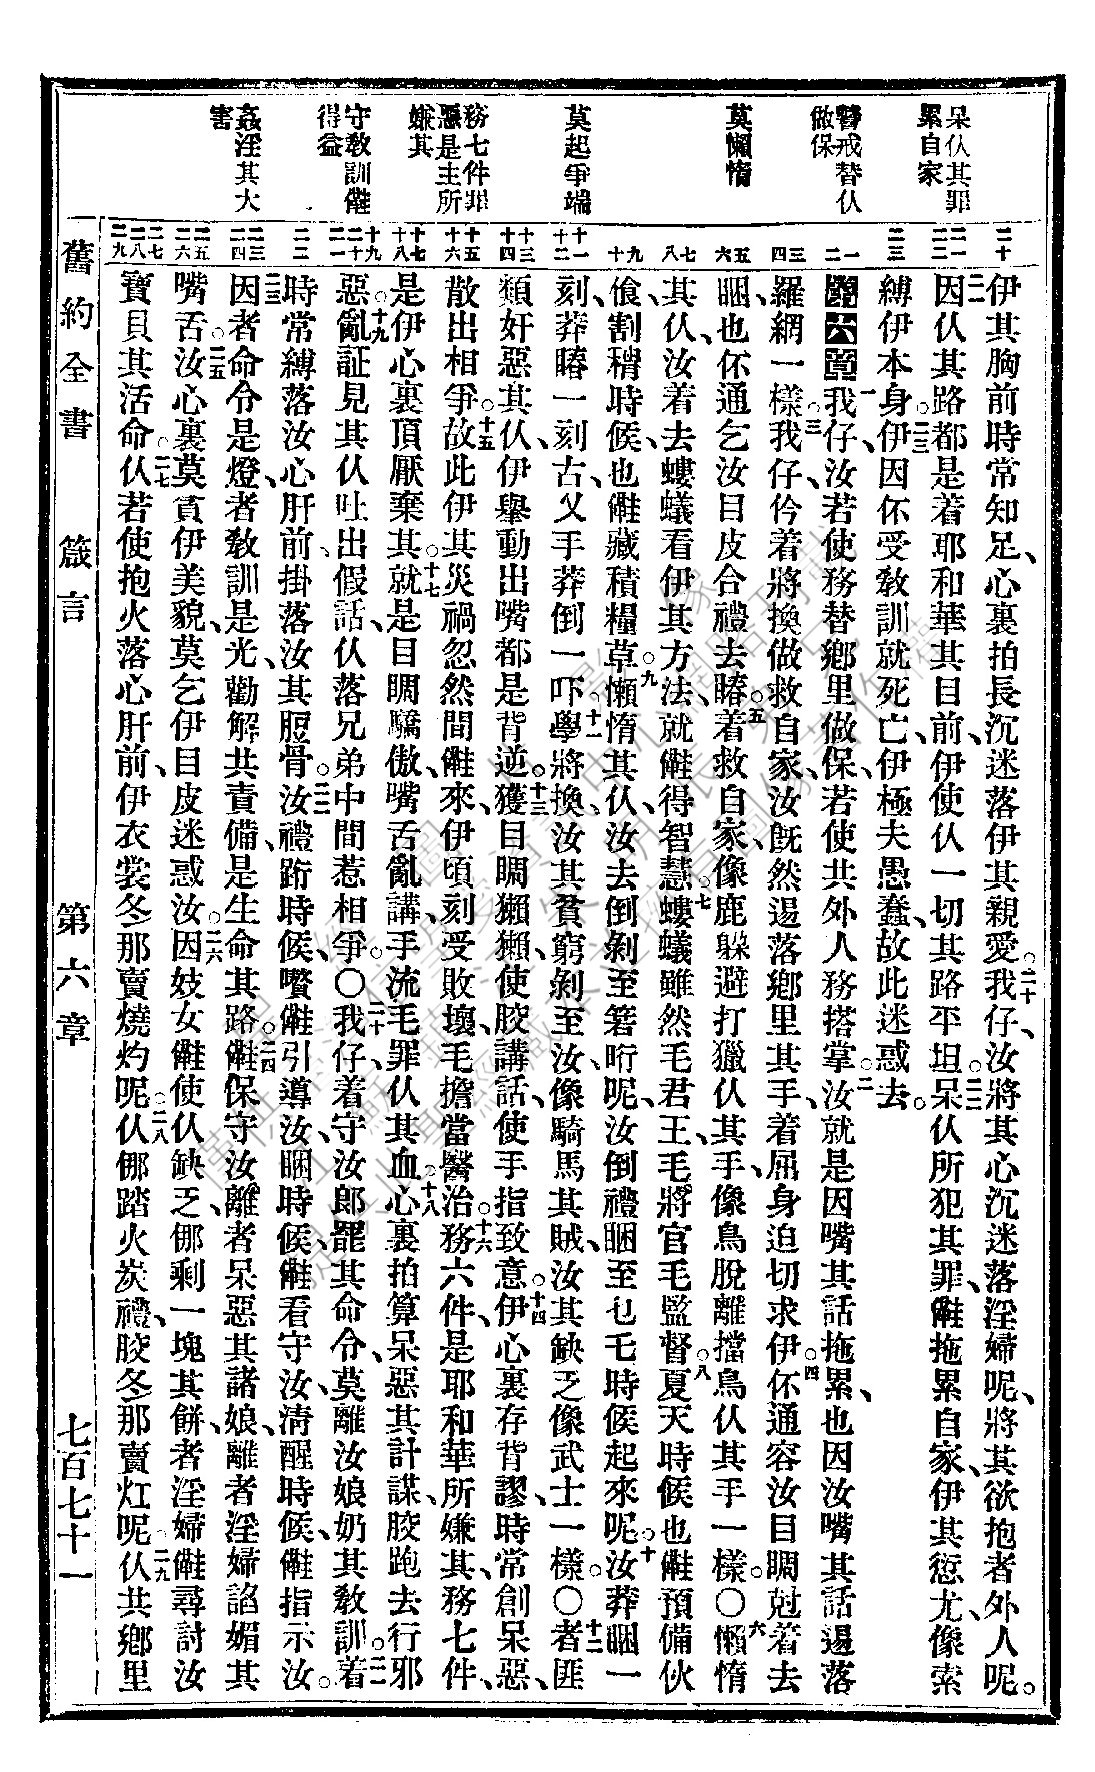 呆仈其罪
累自家
警戒替仈
做保
莫懶惰
莫起爭端
務七件罪
惡是主所
嫌其
守教訓𠆧
得益
姦淫其大
害
二十
二一
二二
二三
一
二
三
四
五
六
七
八
九
十
十一
十二
十三
十四
十五
十六
十七
十八
十九
二十
二一
二二
二三
二四
二五
二六
二七
二八
二九
伊其胸前時常知足、心裏拍長沉迷落伊其親愛。二十我仔、汝將其心沉迷落淫婦呢、將其欲抱者外人呢。
二一因仈其路都是着耶和華其目前、伊使仈一切其路平坦。二二呆仈所犯其罪、𠆧拖累自家、伊其愆尤、像索
縛伊本身。二三伊因伓受教訓就死亡、伊極夫愚蠢、故此迷惑去。
第六章一我仔、汝若使務替鄉里做保、若使共外人務搭掌。二汝就是因嘴其話拖累、也因汝嘴其話逿落
羅網一樣。三我仔仱着將換做救自家、汝既然逿落鄉里其手、着屈身迫切求伊。四伓通容汝目睭尅着去
睏、也伓通乞汝目皮合禮去䁖。五着救自家、像鹿躱避打獵仈其手、像鳥脫離擋鳥仈其手一樣。〇六懶惰
其仈、汝着去螻蟻看伊其方法、就𠆧得智慧。七螻蟻雖然毛君王、毛將官毛監督。八夏天時候也𠆧預備伙
食、割穧時候、也𠆧藏積糧草。九懶惰其仈、汝去倒剝至䇬昕呢、汝倒禮睏至乜乇時候起來呢。十汝莽睏一
刻、莽䁖一刻、古乂手莽倒一吓。十一學將換汝其貧窮剝至汝、像騎馬其賊、汝其缺乏像武士一樣。〇十二者匪
類奸惡其仈、伊舉動出嘴都是背逆。十三獲目睭獺獺、使骹講話、使手指致意。十四伊心裏存背謬、時常創呆惡、
散出相爭。十五故此伊其災禍忽然間𠆧來、伊頃刻受敗壞、毛擔當醫治。十六務六件、是耶和華所嫌其、務七件、
是伊心裏頂厭棄其。十七就是目睭驕傲、嘴舌亂講、手流毛罪仈其血。十八心裏拍算呆惡其計謀、骹跑去行邪
惡。十九亂証見其仈吐出假話、仈落兄弟中間惹相爭。〇二十我仔着守汝郎罷其命令、莫離汝娘奶其教訓。二一着
時常縛落汝心肝前、掛落汝其脰骨。二二汝禮跀時候、嚽𠆧引導汝、睏時候、𠆧看守汝、清醒時候、𠆧指示汝。
二三因者命令是燈、者教訓是光、勸解共責備、是生命其路。二四𠆧保守汝離者呆惡其諸娘、離者淫婦諂媚其
嘴舌。二五汝心裏莫貪伊美貌、莫乞伊目皮迷惑汝。二六因妓女𠆧使仈缺乏、㑚剩一塊其餅、者淫婦𠆧尋討汝
寶貝其活命。二七仈若使抱火落心肝前、伊衣裳冬那賣燒灼呢。二八仈㑚踏火炭禮、骹冬那賣㶥呢。二九仈共鄉里
舊約全書　箴言　第六章　七百七十一